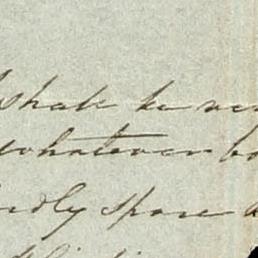 shall be ver
whatever bo
indly spare a